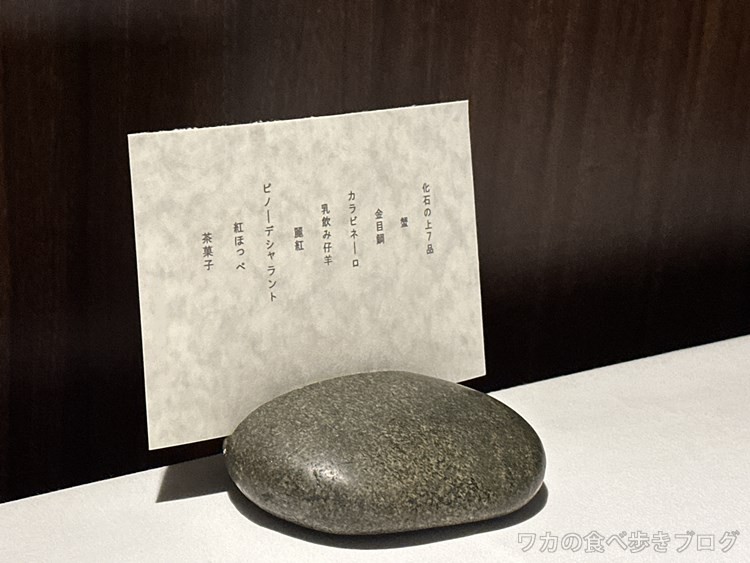 化石の上7品
蟹
金目鯛
カラビネーロ
乳飲み仔羊
麗紅
ピノーデシャラント
紅ほっぺ
茶菓子
ワカの食べ歩きブログ